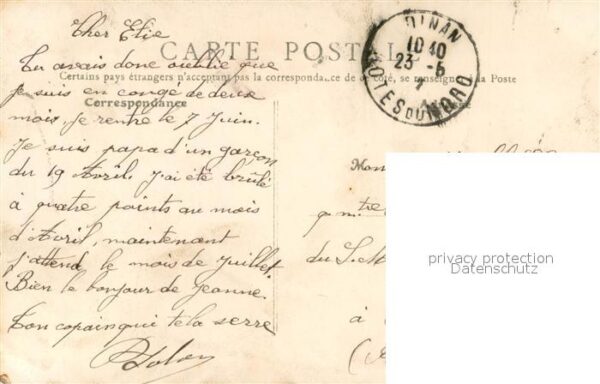 Cher Elie
CARTE POSTALE
Tu avais donc oublié que
Certains pays étrangers n'acceptant pas la correspondance de ce côté, se renseigner à la Poste
je suis en congé de deux
Correspondance
mois, je rentre le 7 Juin.
Je suis papa d'un garçon
du 19 Avril, j'ai été brûlé
à quatre points au mois
d'Avril, maintenant
j'attend le mois de Juillet.
Bien le bonjour de Jeanne.
Ton copain qui te la serre
DINAN
10 40
23 -5
COTES DU NORD
Mon
tre
du
à
privacy protection
Datenschutz